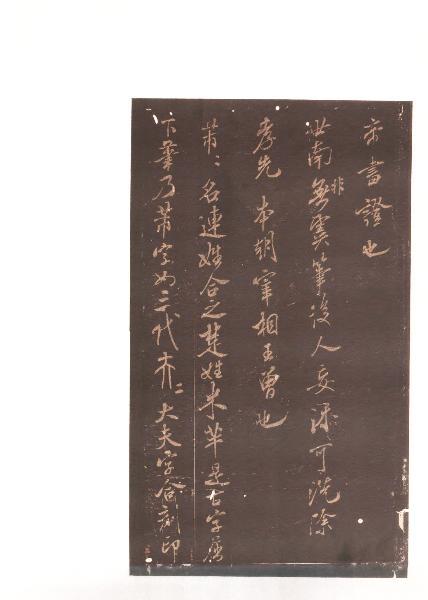 書證也
世南非無虞筆後人妄添可洗除
孝先本朝宰相王曾也
芾〻名連姓合之楚姓米芊是古字屈
下筆乃芾字如三代二大夫字合刻印